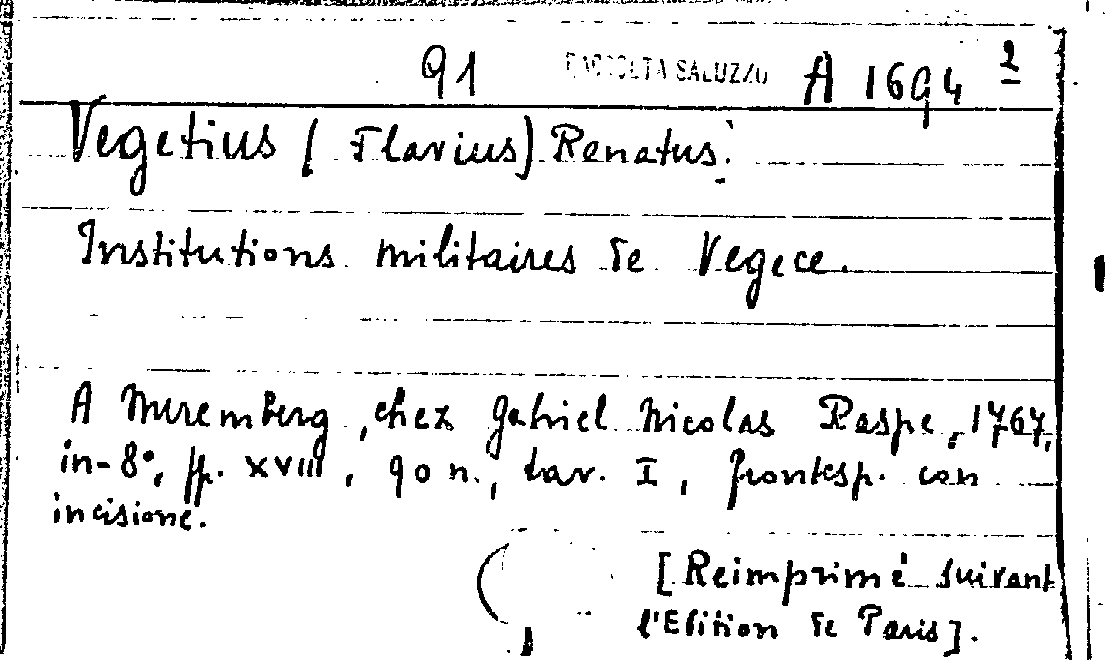 91 RACCOLTA SALUZZO A 1694 2
Vegetius (Flavius) Renatus.
Institutions militaires de Vegece.
A Nuremberg, chez Gabriel Nicolas Raspe, 1767,
in-8°, pp. XVIII, 90 n., tav. I, frontesp. con
incisione.
[Reimprimé suivant
l'Edition de Paris].